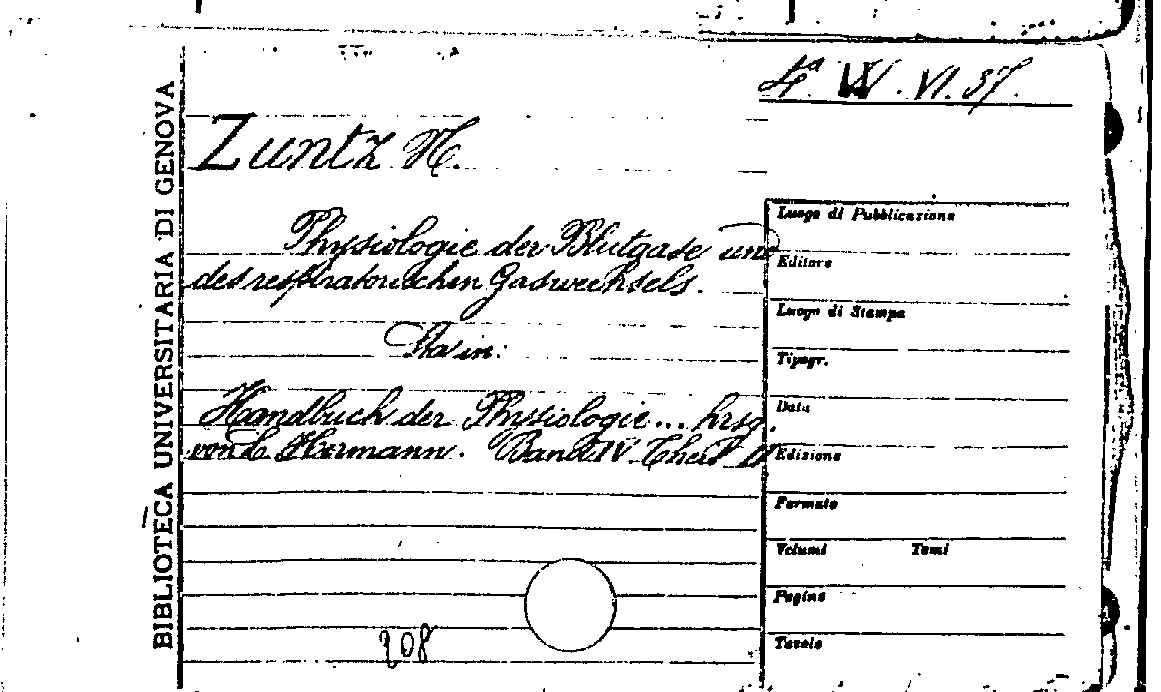 BIBLIOTECA UNIVERSITARIA DI GENOVA
Zuntz N.
Physiologie der Blutgase und
des respiratorischen Gaswechsels.
Sta in:
Handbuch der Physiologie... hrsg.
von L. Hermann. Band IV. Theil II
208
Luogo di Pubblicazione
Editore
Luogo di Stampa
Tipogr.
Data
Edizione
Formato
Volumi Tomi
Pagine
Tavole